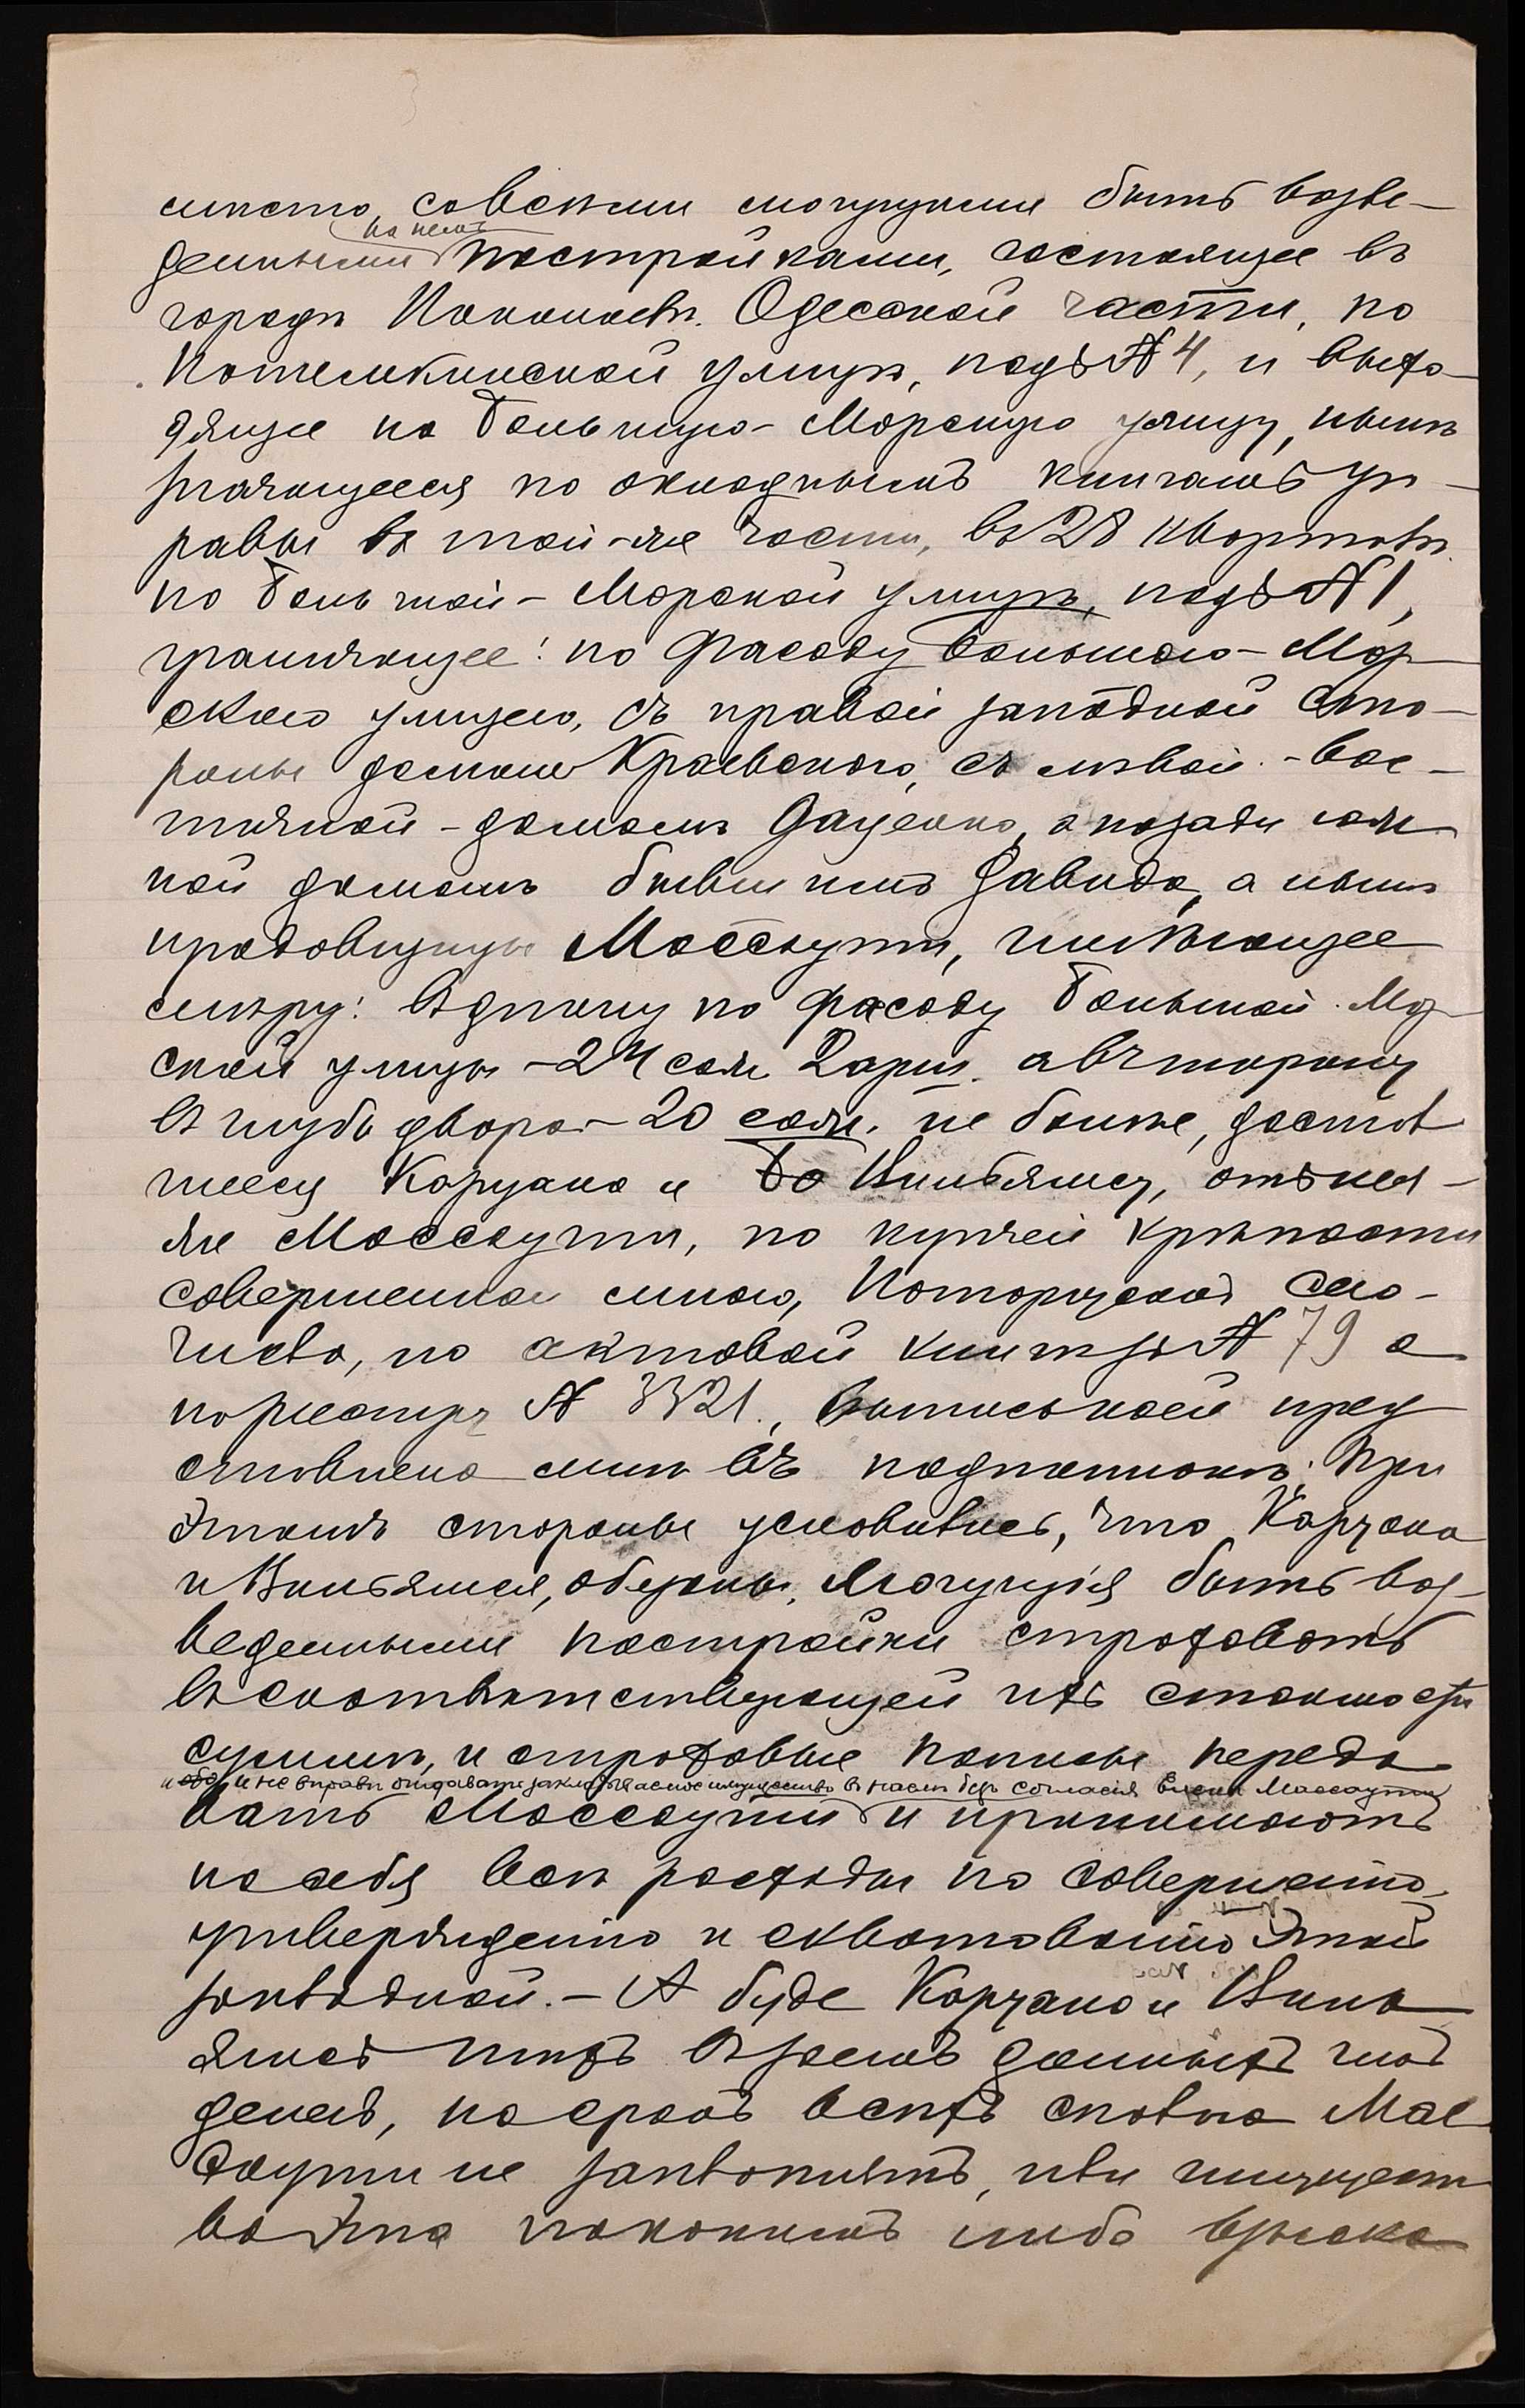 мѣсто, со всѣми могущими быть возве-
на немъ
денными постройками, состоящее въ
городѣ Николаевѣ Одесской части, по
Потемкинской улицѣ, подъ № 4, и выхо-
дящее на Большую-Морскую улицу, нынѣ
значущееся по окладнымъ книгамъ Уп-
равы въ той-же части, въ 28 кварталѣ
по Большой-Морской улицѣ, подъ № 1,
граничущее: по фасаду Большою-Мор-
скою улицею, съ правой западной сто-
роны домомъ Краевского, съ лѣвой-вос-
точной-домомъ Даценко, а позади
домомъ бывшимъ Давида, а нынѣ
продавщицы Моссаути, имѣющее
мѣру: въ длину по фасаду Большой-Мор-
ской улицы-24 саж. 2 арш. а въ сторону
въ глубь двора-20 саж. не болѣе, достав-
шееся Корчако и Вильямсу, отъ нея-
же Моссаути, по купчей крѣпости
совершенной мною, Нотаріусомъ
по актовой книгѣ за № 79 а
по реестру № 3321, выпись коей пред
ставлена мнѣ въ подлинникѣ. При
этомъ стороны условились, что Корчако
и Вильямсъ, обязаны, могущія быть воз-
веденными постройки страховать
въ соотвѣтствующей ихъ стоимости
суммѣ, и страховые полисы переда-
и не вправѣ отдавать закладываемое имущество въ наемъ безъ согласія Елены Моссаути
вать Моссаути и принимаютъ
на себя всѣ расходы по совершенію,
утвержденію и сквитованію этой
закладной.- А буде Корчако и Виль-
ямсъ тѣхъ взаемъ данныхъ имъ
денегъ, на срокъ всѣхъ сполна Мос
саути не заплотимъ, или имущест
во это какимъ либо взыска-